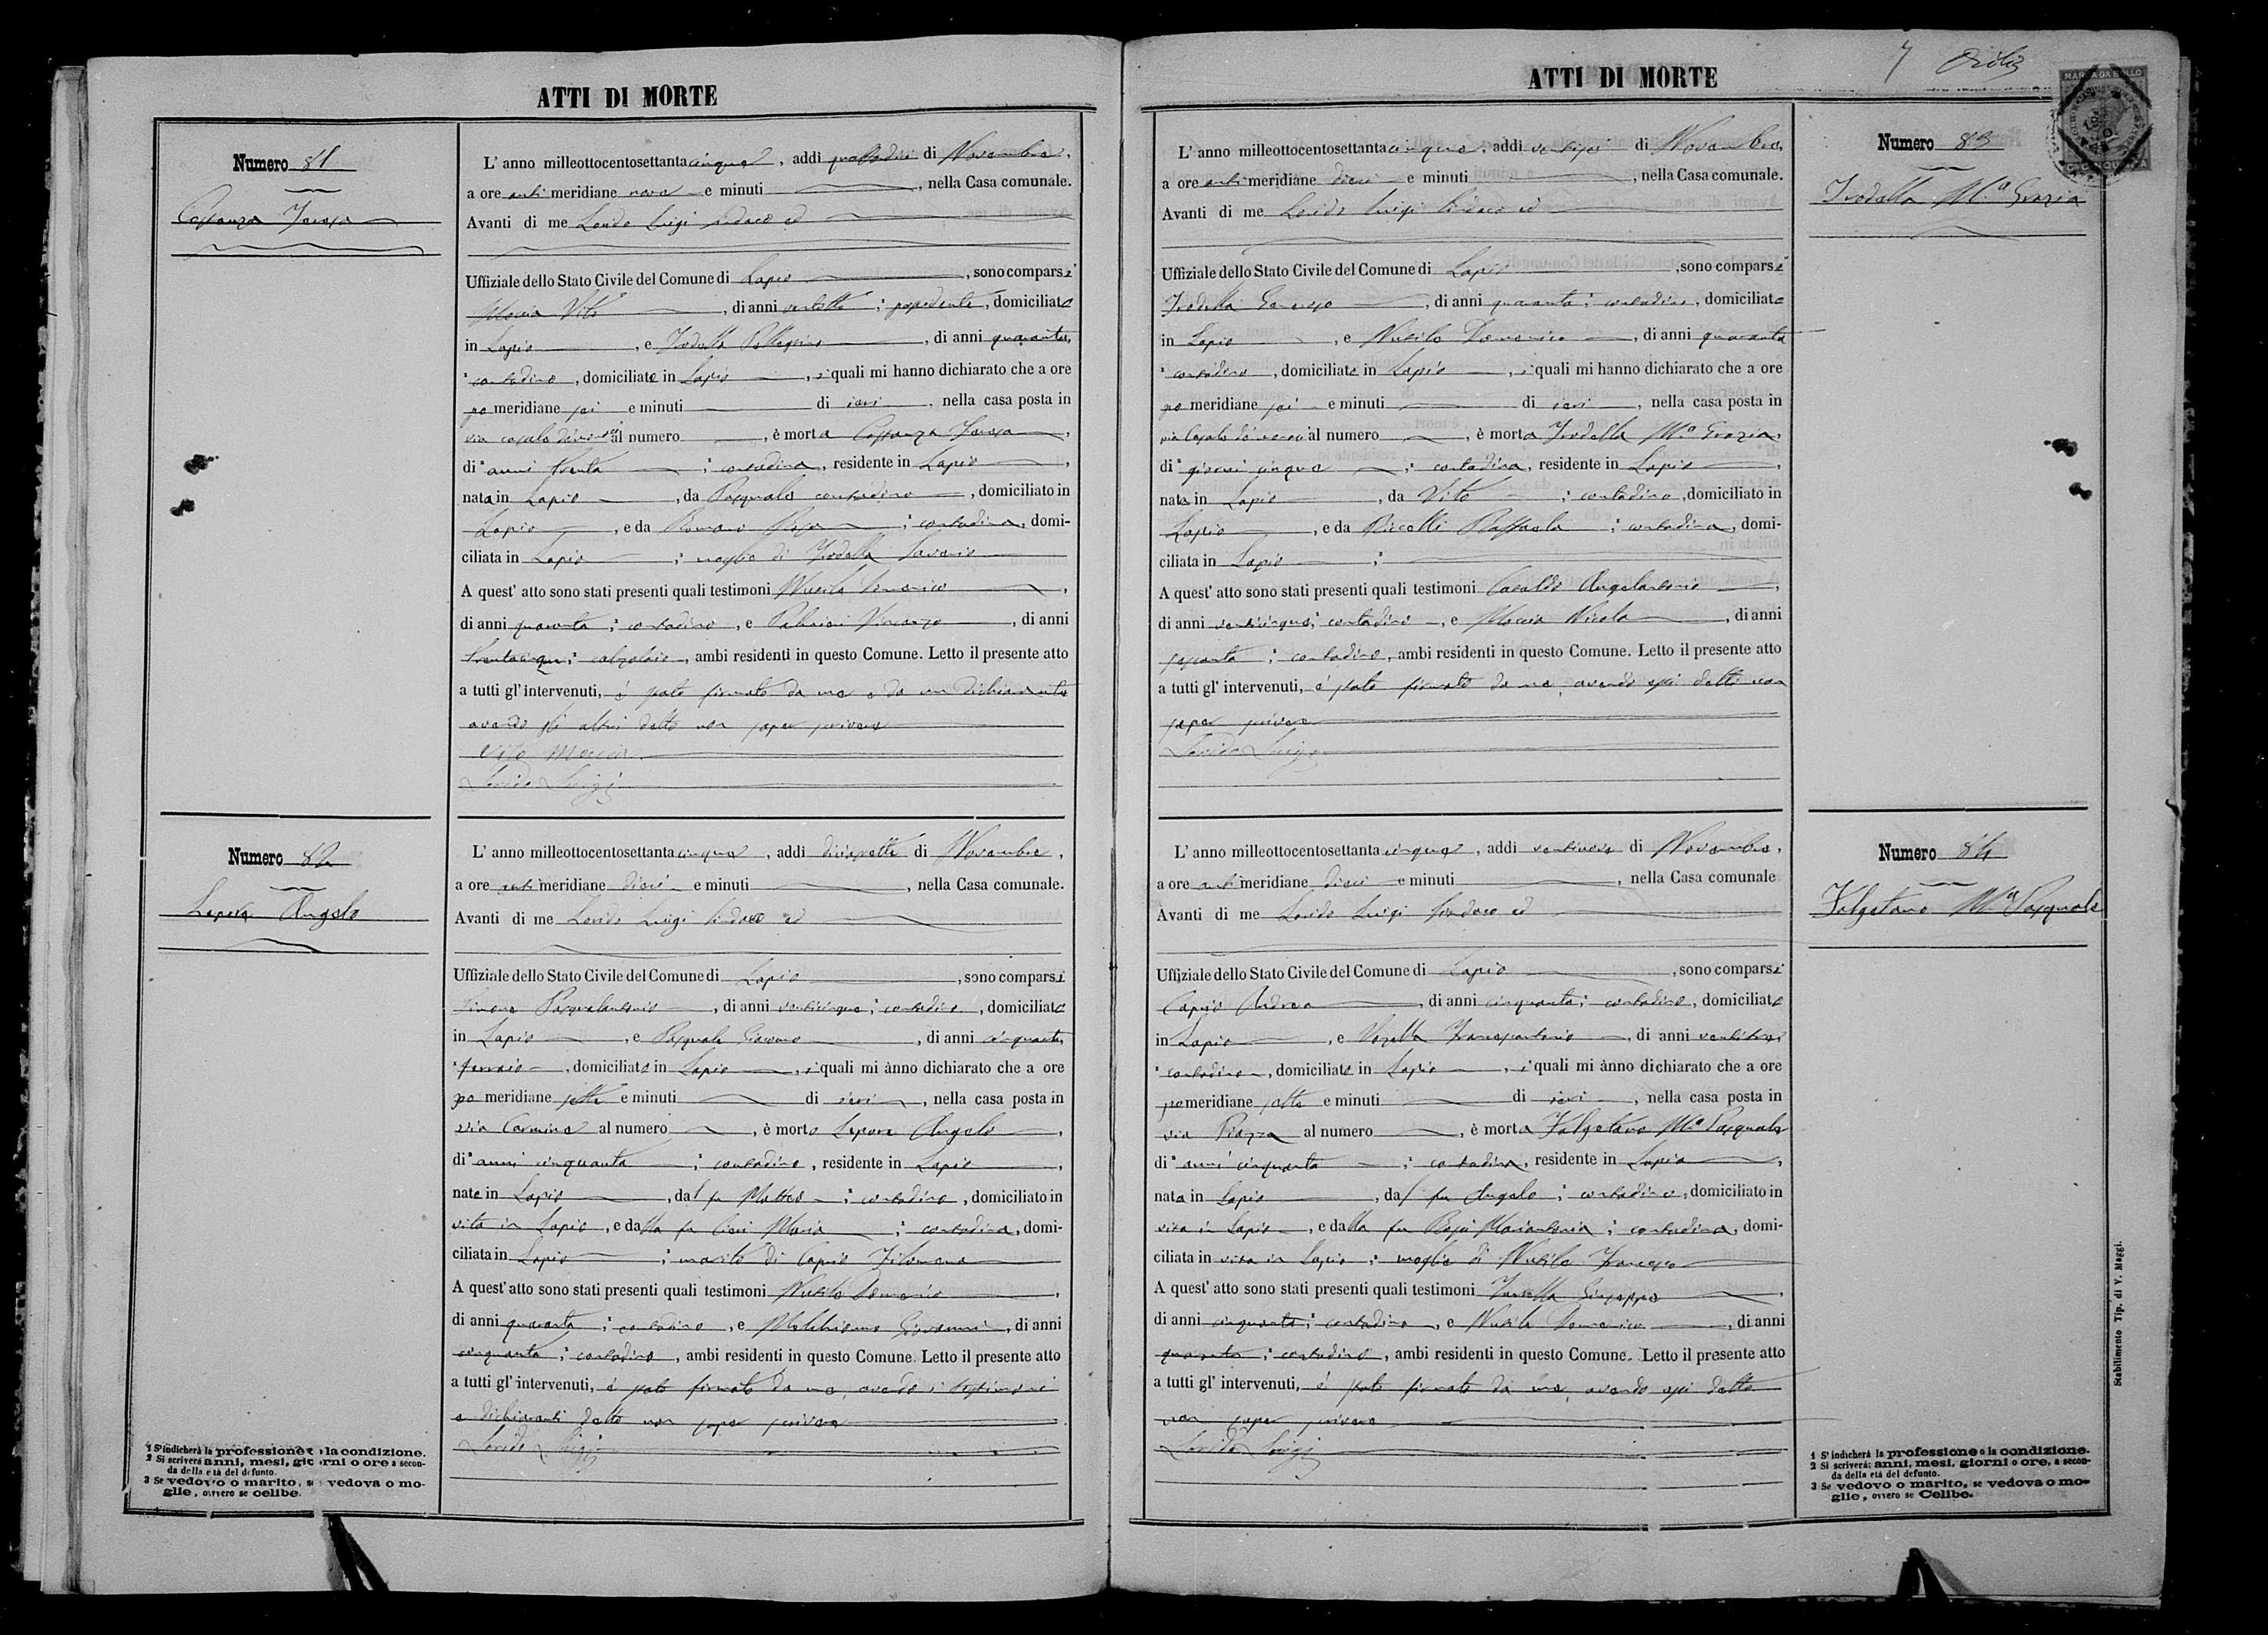 ATTI DI MORTE
Numero 81
Costanza Teresa
L' anno milleottocentosettantacinque, addì quattordici di Novembre,
a ore antimeridiane nove e minuti, nella Casa comunale.
Avanti di me Lorido Luigi Sindaco ed
Uffiziale dello Stato Civile del Comune di Lapio, sono comparsi
Moccia Vito, di anni ventotto; possidente, domiciliato
in Lapio, e Trodella Pellegrino, di anni quaranta,
contadino, domiciliato in Lapio, i quali mi hanno dichiarato che a ore
pomeridiane sei e minuti di ieri, nella casa posta in
via casale al numero, è morta Costanza Teresa,
di anni trenta; contadina, residente in Lapio,
nata in Lapio, da Pasquale contadino, domiciliato in
Lapio, e da Romano Rosa; contadina, domi-
ciliata in Lapio; moglie di Trodella Saverio
A quest' atto sono stati presenti quali testimoni Nusilo Domenico,
di anni quaranta; contadino, e Vincenzo, di anni
trentacinque; calzolaio, ambi residenti in questo Comune. Letto il presente atto
a tutti gl' intervenuti, è stato firmato da me e da un dichiarante
avendo gli altri detto non saper scrivere
Vito Moccia
Lorido Luigi
Numero 82
Lepore Angelo
L' anno milleottocentosettantacinque, addì diciassette di Novembre,
a ore antimeridiane dieci e minuti, nella Casa comunale.
Avanti di me Lorido Luigi Sindaco ed
Uffiziale dello Stato Civile del Comune di Lapio, sono comparsi
Simone Pasqualantonio, di anni venticinque; contadino, domiciliato
in Lapio, e Pasquale Giacomo, di anni cinquanta,
ferraio, domiciliato in Lapio, i quali mi ànno dichiarato che a ore
pomeridiane sette e minuti di ieri, nella casa posta in
via Carmine al numero, è morto Lepore Angelo,
di anni cinquanta; contadino, residente in Lapio,
nato in Lapio, dal fu Matteo; contadino, domiciliato in
vita in Lapio, e dalla fu Maria; contadina, domi-
ciliata in Lapio; marito di Caprio Filomena
A quest' atto sono stati presenti quali testimoni Nusilo Domenico,
di anni quaranta; contadino, e Melchionno Giovanni, di anni
cinquanta; contadino, ambi residenti in questo Comune. Letto il presente atto
a tutti gl' intervenuti, è stato firmato da me, avendo i testimoni
e dichiaranti detto non saper scrivere
Lorido Luigi
1 S' indicherà la professione o la condizione.
2 Si scriverà anni, mesi, giorni o ore a secon-
da della età del defunto.
3 Se vedovo o marito, se vedova o mo-
glie, ovvero se celibe.
ATTI DI MORTE
MARCA DA BOLLO
Numero 83
Trodella Mª Grazia
L' anno milleottocentosettantacinque, addì ventisei di Novembre,
a ore antimeridiane dieci e minuti, nella Casa comunale.
Avanti di me Lorido Luigi Sindaco ed
Uffiziale dello Stato Civile del Comune di Lapio, sono comparsi
Trodella Generoso, di anni quaranta; contadino, domiciliato
in Lapio, e Nusilo Domenico, di anni quaranta
contadino, domiciliato in Lapio, i quali mi hanno dichiarato che a ore
pomeridiane sei e minuti di ieri, nella casa posta in
via Casale al numero, è morta Trodella Mª Grazia,
di giorni cinque; contadina, residente in Lapio,
nata in Lapio, da Vito; contadino, domiciliato in
Lapio, e da Riccelli Raffaela; contadina, domi-
ciliata in Lapio;
A quest' atto sono stati presenti quali testimoni Cataldo Angelantonio,
di anni venticinque; contadino, e Moccia Nicola, di anni
sessanta; contadino, ambi residenti in questo Comune. Letto il presente atto
a tutti gl' intervenuti, è stato firmato da me, avendo essi detto non
saper scrivere
Lorido Luigi
Numero 84
Folgetano Mª Pasquale
L' anno milleottocentosettantacinque, addì ventinove di Novembre,
a ore antimeridiane dieci e minuti, nella Casa comunale
Avanti di me Lorido Luigi Sindaco ed
Uffiziale dello Stato Civile del Comune di Lapio, sono comparsi
Caprio Andrea, di anni cinquanta; contadino, domiciliato
in Lapio, e Vozella Francesantonio, di anni ventitre,
contadino, domiciliato in Lapio, i quali mi ànno dichiarato che a ore
pomeridiane sette e minuti di ieri, nella casa posta in
via Piazza al numero, è morta Folgetano Mª Pasquale
di anni cinquanta; contadina, residente in Lapio,
nata in Lapio, dal fu Angelo; contadino, domiciliato in
vita in Lapio, e dalla fu Mariantonia; contadina, domi-
ciliata in vita in Lapio; moglie di Nusilo Francesco
A quest' atto sono stati presenti quali testimoni Giuseppe,
di anni cinquanta; contadino, e Nusilo Domenico, di anni
quaranta; contadino, ambi residenti in questo Comune. Letto il presente atto
a tutti gl' intervenuti, è stato firmato da me, avendo essi detto
non saper scrivere
Lorido Luigi
1 S' indicherà la professione o la condizione.
2 Si scriverà: anni, mesi, giorni o ore, a secon-
da della età del defunto.
3 Se vedovo o marito, se vedova o mo-
glie, ovvero se Celibe.
Stabilimento Tip. di V. Maggi.